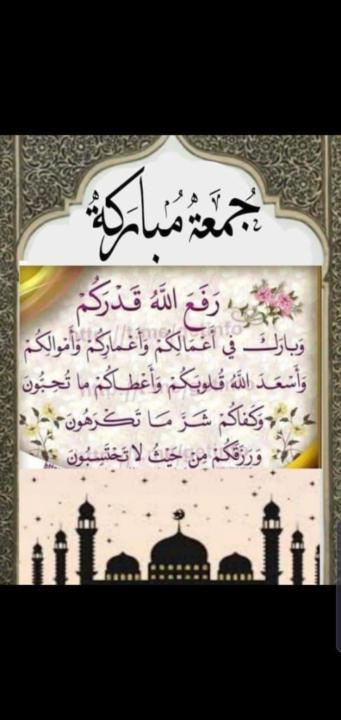 جُمعَة مُبارَكة
رَفَعَ اللهُ قَدْرَكُمْ
وَبارَكَ في أَعْمَالِكُمْ وَأَعْمارِكُمْ وَأَمْوالِكُمْ
وَأَسْعَدَ اللهُ قُلوبَكُمْ وَأَعْطاكُمْ ما تُحِبُّونَ
وَكَفاكُمْ شَرَّ مَا تَكْرَهُونَ
وَرَزَقَكُمْ مِن حَيْثُ لا تَحْتَسِبُونَ